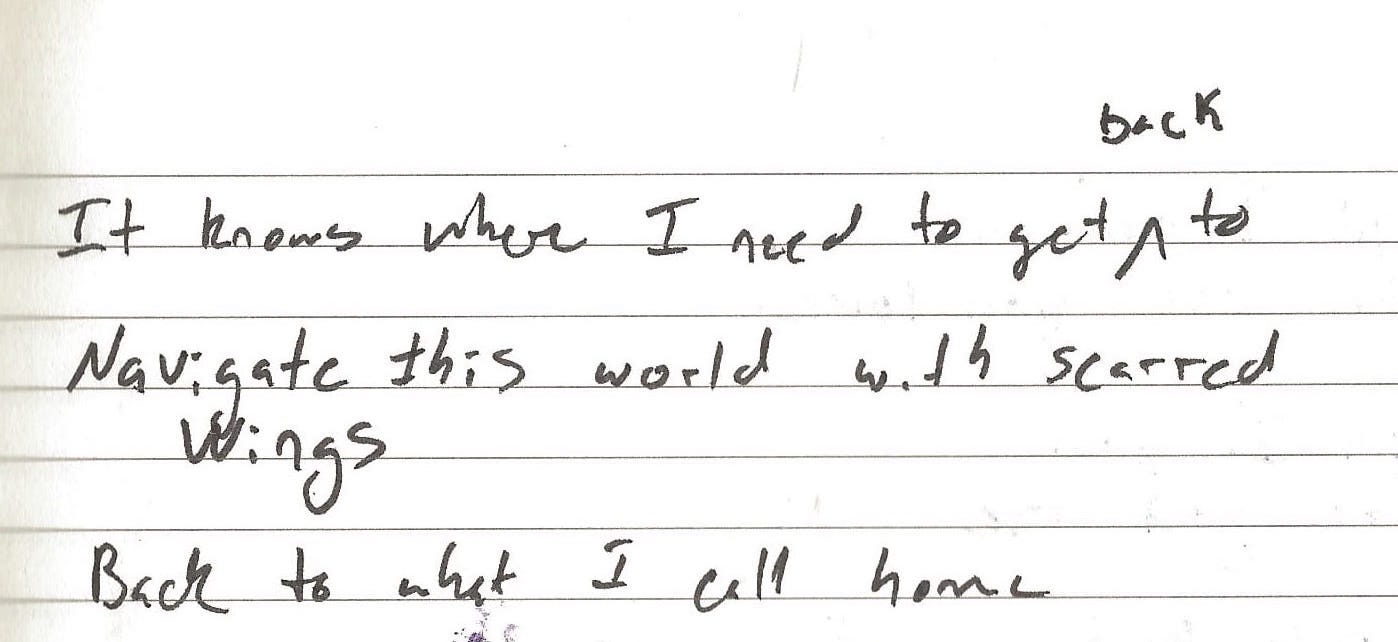 back
It knows where I need to get ^ to
Navigate this world with scarred
Wings
Back to what I call home